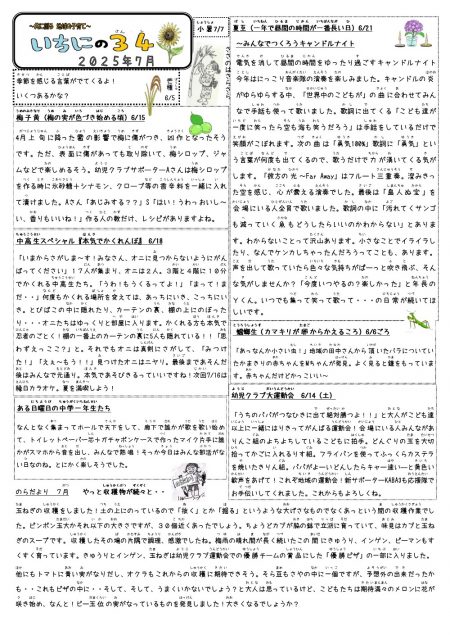 いちにの３４
２０２５年７月
小暑7/7
季節を感じる言葉がでてくるよ！
いくつあるかな？
芒種
6/5
梅子黄（梅の実が色づき始める頃）6/15
4月上旬に降った雹の影響で梅に傷がつき、凶作となったそう
です。ただ、表面に傷があっても取り除いて、梅シロップ、ジャ
ムなどで楽しめるそう。幼児クラブサポーターAさんは梅シロップ
を作る時に氷砂糖＋シナモン、クローブ等の香辛料を一緒に入れ
て漬けました。Aさん「あじみする？？」S「はい！うわっおいし～
い、香りもいいね！」作る人の数だけ、レシピがありますよね。
中高生スペシャル『本気でかくれんぼ』 6/18
「いまからさがしま～す！みなさん、オニに見つからないようにがん
ばってください」１７人が集まり、オニは２人。３階と４階に１０分
でかくれる中高生たち。「うわ！もうくるってよ！」「まって！ま
だ・・」何度もかくれる場所を変えては、あっちにいき、こっちにい
き。とびばこの中に隠れたり、カーテンの裏、棚の上にのぼった
り・・・オニたちはゆっくりと部屋に入ります。かくれる方も本気で
忍者のごとく！棚の一番上のカーテンの裏に1人も隠れている！「思
わずえっここ？」と。それでもオニは真剣にさがして、「みつけ
た！」「え～もう！！」見つけたオニはニヤリ。最後まであそんだ
後はみんなで元通り。本気であそびきるっていいですね！次回7/16は
縁日カラオケ。夏を満喫しよう！
ある日曜日の中学一年生たち
なんとなく集まってホールで天下をして、廊下で誰かが歌を歌い始め
て、トイレットペーパー芯＋ガチャポンケースで作ったマイク片手に誰
かがスマホから音を出し、みんなで熱唱！そっか今日はみんな部活がな
い日なのね。とにかく楽しそうでした。
夏至（一年で昼間の時間が一番長い日）6/21
～みんなでつくろうキャンドルナイト
電気を消して昼間の時間をゆったり過ごすキャンドルナイト
今年はにっこり音楽隊の演奏を楽しみました。キャンドルの炎
がゆらゆらする中、「世界中のこどもが」の曲に合わせてみん
なで手話も使って歌いました。歌詞に出てくる「こども達が
一度に笑ったら空も海も笑うだろう」は手話をしているだけで
笑顔がこぼれます。次の曲は「勇気100％」歌詞に「勇気」とい
う言葉が何度も出てくるので、歌うだけで力が湧いてくる気が
します。「彼方の光～Far Away」はフルート三重奏。澄みきっ
た空を感じ、心が震える演奏でした。最後は「にんげんっていいな」を
会場にいる人全員で歌いました。
ず。わからないことって沢山あります。小さなことでイライラし
たり、なんでケンカしちゃったんだろうってことも、あります。
声を出して歌っていたら色々な気持ちがぱーっと吹き飛ぶ、そん
な気がしませんか？「今度いつやるの？楽しかった」と年長の
Yくん。いつでも集って笑って歌って・・・の日常が続いてほ
しいです。
蟷螂生（カマキリが卵からかえるころ）6/6ごろ
「あっなんか小さい虫！」地域の田中さんから頂いたバラについてい
たかまきりの赤ちゃんをMちゃんが発見。よく見ると鎌をもっていま
す。赤ちゃんだけどかっこいい～
幼児クラブ大運動会 6/14（土）
「うちのパパがつなひきに出て絶対勝つよ！！」と大人がこども達
以上に一緒にはりきってがんばる運動会！会場にいるみんながあ
りんこ組のよちよちしているこどもに拍手。どんぐりの玉を大切に
拾ってかごに入れるりす組。フライパンを使ってふっくらカステラ
を焼いたきりん組。パパがよーいどんしたらキャー速いーと黄色い
歓声をあげて！これぞ地域の運動会！新サポーターKABA3も応援隊で
お手伝いしてくれました。これからもよろしくね。
のらだより ７月 やっと収穫物が続々と・・
玉ねぎの収穫をしました！土の上にのっているので「抜く」とか「掘る」というような大げさなものでなくあっという間の収穫作業でし
た。ピンポン玉大かそれ以下の大きさですが、３０個近くあったでしょう。ちょうどカブが脇の畝で立派に育っていて、味見はカブと玉ね
ぎのスープです。収穫したその場の共調で調理、感激でしたね。梅雨の晴れ間が長く続いたこの間にきゅうり、インゲン、ピーマンもす
くすく育っています。きゅうりとインゲン、玉ねぎは幼児クラブ運動会での優勝チームの賞品にした「優勝ピザ」の一部に入りました。
他にもトマトに青い実がなりだし、オクラもこれからの収穫に期待できそう。そら豆もさやの中に一個ですが、予想外の出来だったか
も・・これもピザの中に・・そして、そして、うまくいかないでしょう？と大人は思っているけど、こどもたちは期待満々のメロンに花が
咲き始め、なんと！ピー玉位の実がなっているものを発見しました！大きくなるでしょうか？